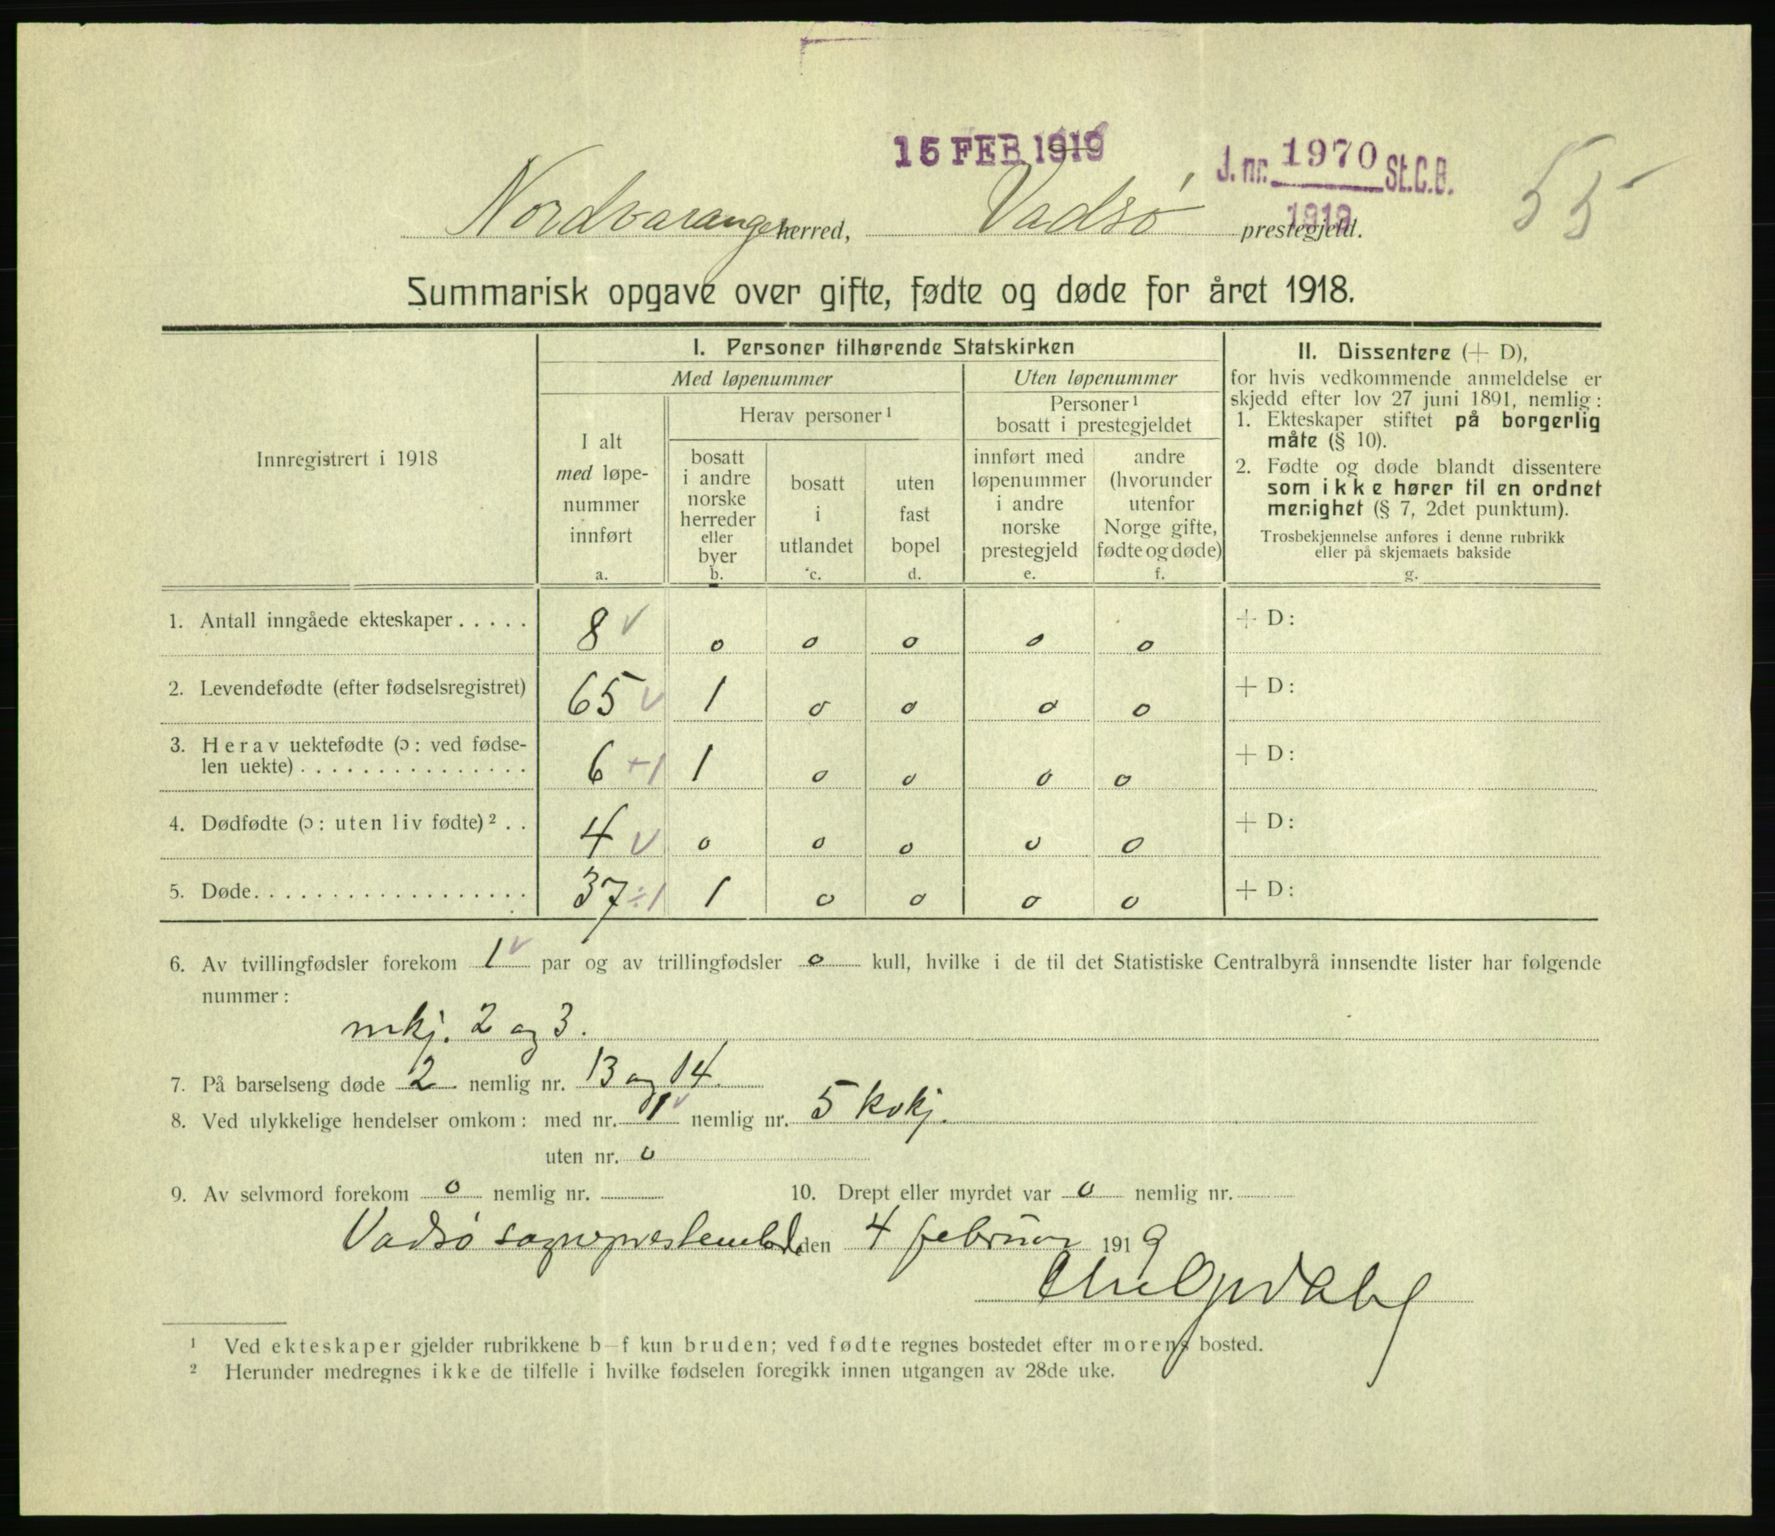 15 FEB 1919
J. nr. 1970 St.C.B.
1919
55
Nordvaranger herred, Vadsø prestegjeld.
Summarisk opgave over gifte, fødte og døde for året 1918.
Innregistrert i 1918
I. Personer tilhørende Statskirken
Med løpenummer
Uten løpenummer
I alt
med løpe-
nummer
innført
a.
Herav personer ¹
bosatt
i andre
norske
herreder
eller
byer
b.
bosatt
i
utlandet
c.
uten
fast
bopel
d.
Personer ¹
bosatt i prestegjeldet
innført med
løpenummer
i andre
norske
prestegjeld
e.
andre
(hvorunder
utenfor
Norge gifte,
fødte og døde)
f.
II. Dissentere (+ D),
for hvis vedkommende anmeldelse er
skjedd efter lov 27 juni 1891, nemlig:
1. Ekteskaper stiftet på borgerlig
måte (§ 10).
2. Fødte og døde blandt dissentere
som ikke hører til en ordnet
menighet (§ 7, 2det punktum).
Trosbekjennelse anføres i denne rubrikk
eller på skjemaets bakside
g.
1. Antall inngåede ekteskaper . . . . . 8 v o o o o o + D:
2. Levendefødte (efter fødselsregistret) 65 v 1 o o o o + D:
3. Herav uektefødte (ɔ: ved fødse-
len uekte) . . . . . . . . . . . . . . . 6 +1 1 o o o o + D:
4. Dødfødte (ɔ: uten liv fødte) ² . . 4 v o o o o o + D:
5. Døde. . . . . . . . . . . . . . . . . . 37 ÷1 1 o o o o + D:
6. Av tvillingfødsler forekom 1 v par og av trillingfødsler o kull, hvilke i de til det Statistiske Centralbyrå innsendte lister har følgende
nummer:
mkj. 2 og 3.
7. På barselseng døde 2 nemlig nr. 13 og 14.
8. Ved ulykkelige hendelser omkom: med nr. 1 v nemlig nr. 5 kvkj.
uten nr. o
9. Av selvmord forekom o nemlig nr. 10. Drept eller myrdet var o nemlig nr.
Vadsø sogneprestembed, den 4 februar 1919
¹ Ved ekteskaper gjelder rubrikkene b–f kun bruden; ved fødte regnes bostedet efter morens bosted.
² Herunder medregnes ikke de tilfelle i hvilke fødselen foregikk innen utgangen av 28de uke.